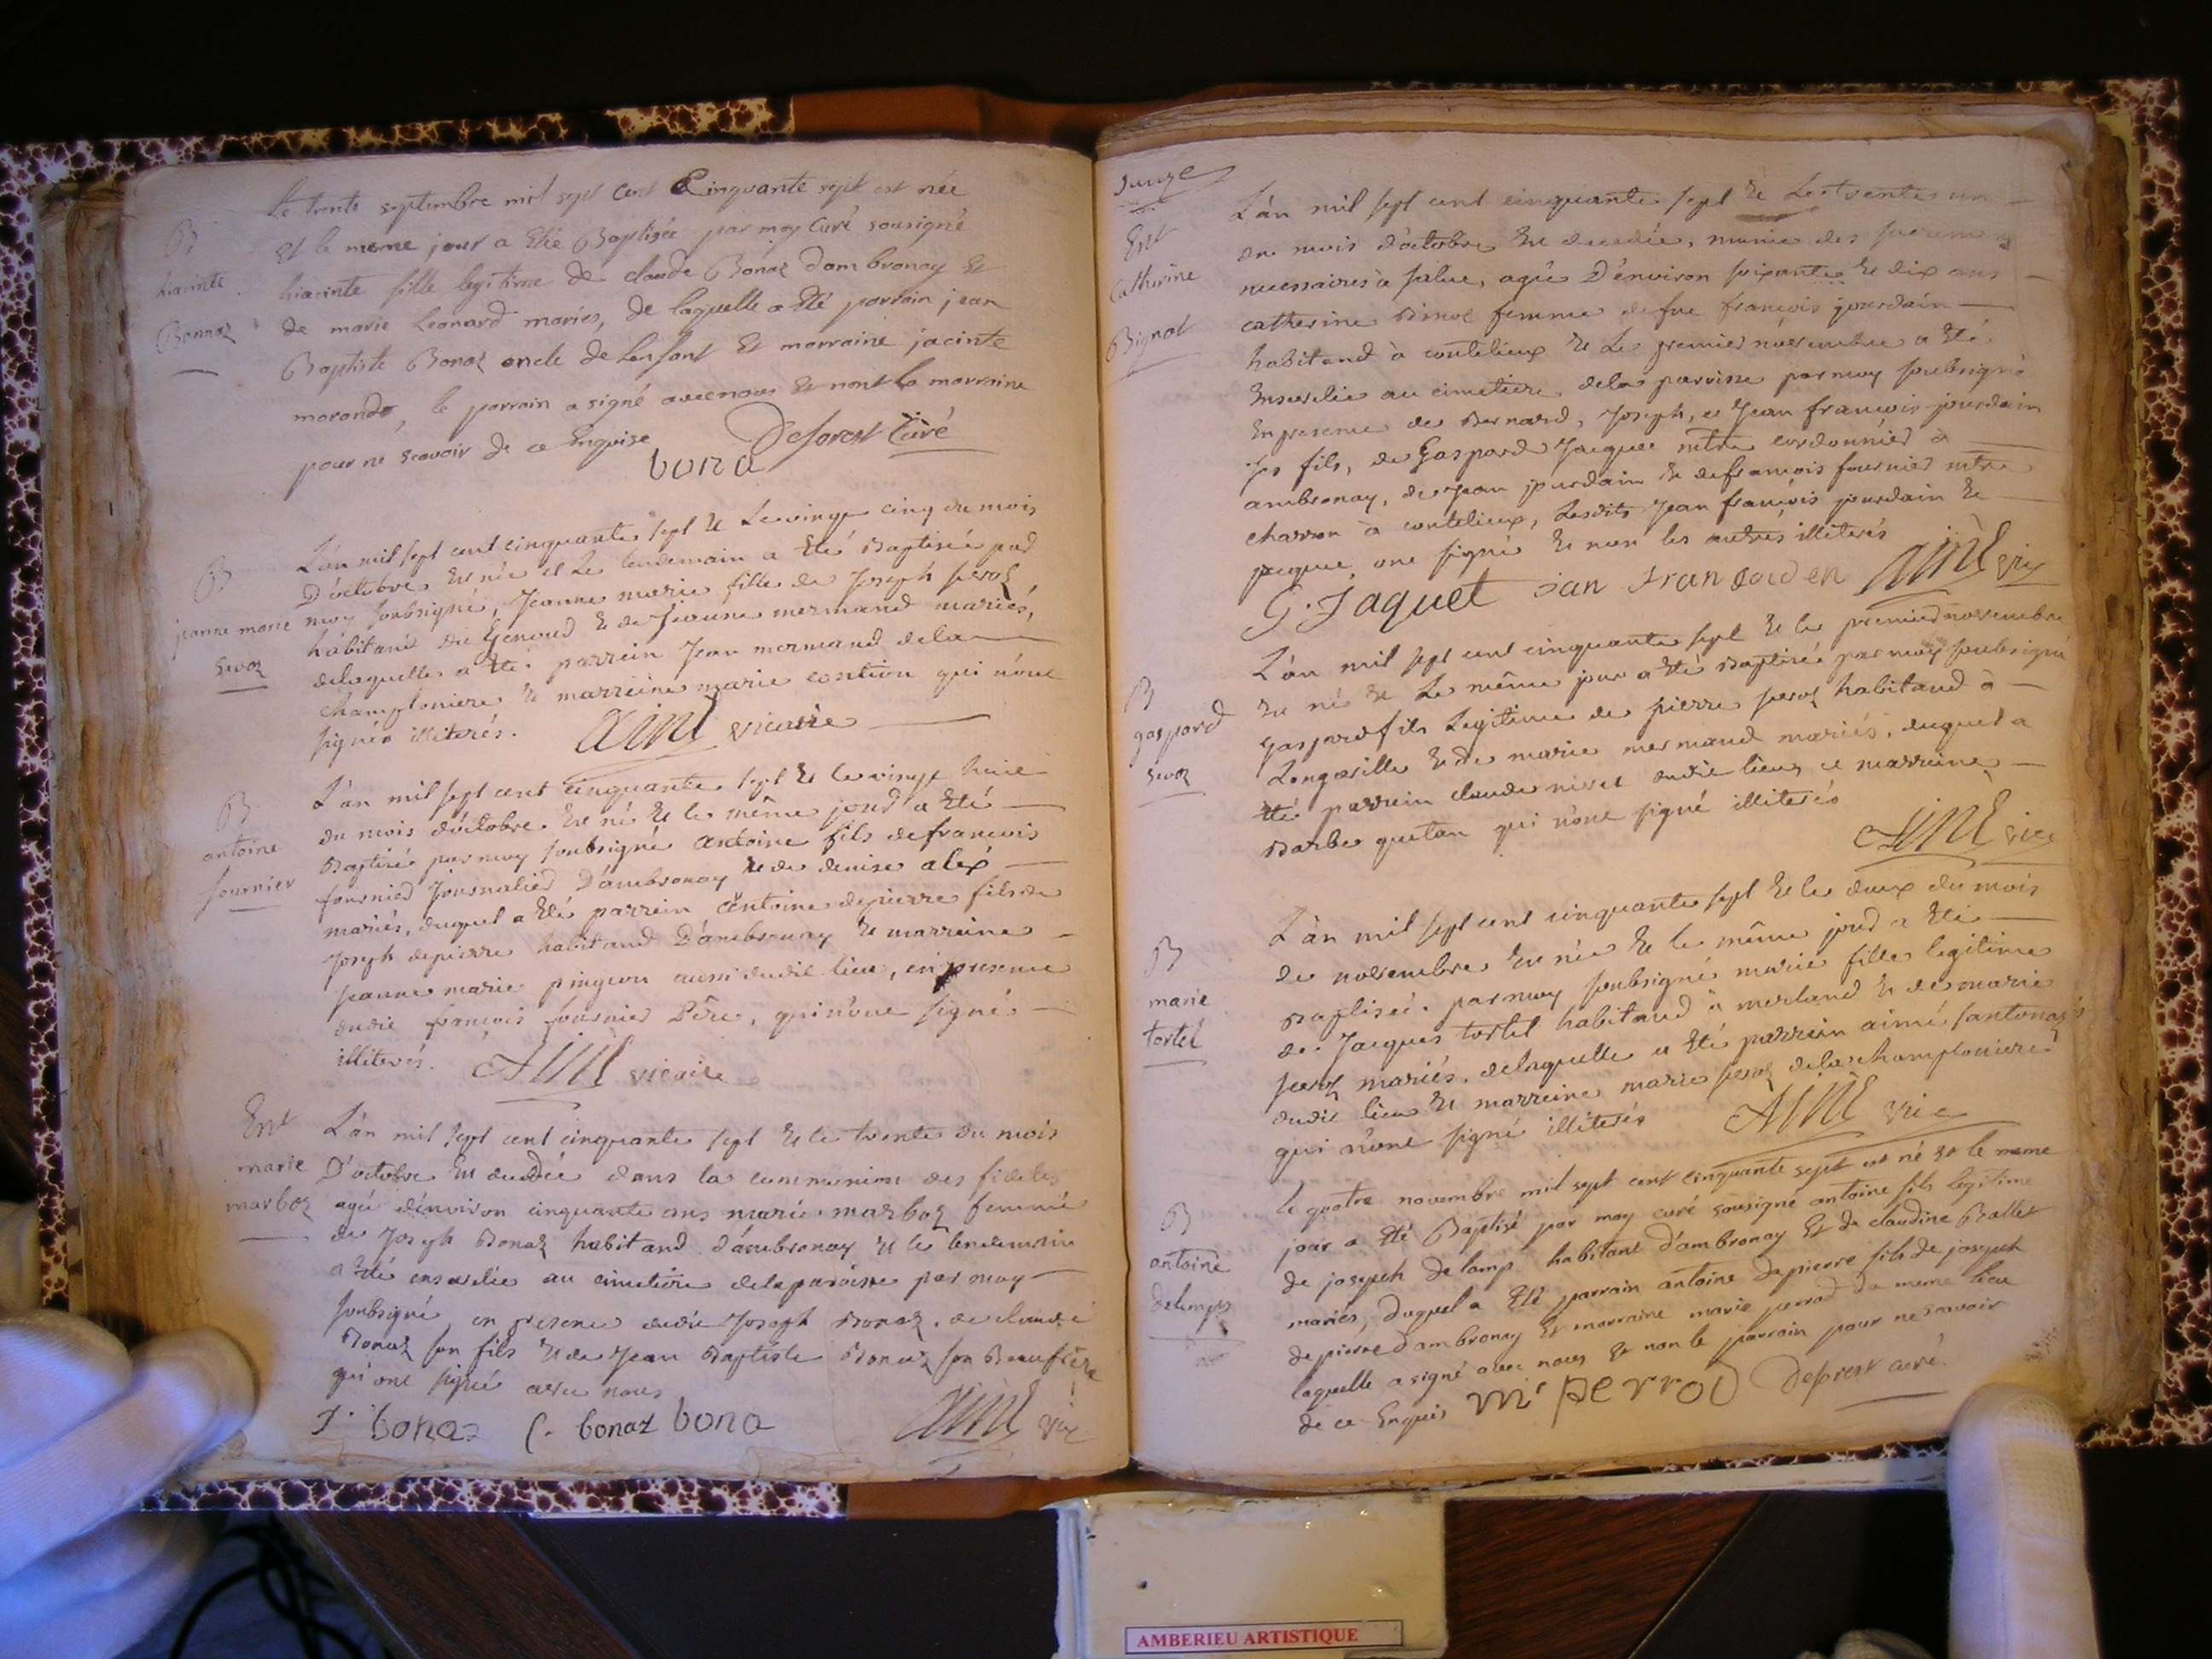 Le trente septembre mil sept cent Cinquante sept est née
B
et le meme jour a Eté Baptisée par moy Curé sousigné
hiacinte
hiacinte fille legitime de claude Bonaz dambronay Et
Bonnaz
de marie Leonard mariés, de laquelle a Eté parrain jean
Baptiste Bonaz oncle de Lenfant Et marraine jacinte
morando, le parrain a signé avec nous Et non la marraine
pour ne scavoir de ce Enquise
Deforest Curé
bona
L'an mil sept cent cinquante sept et le vingt cinq du mois
B
D'octobre est née et Le lendemain a Eté Baptisée par
jeanne marie
moy soubsigné, Jeanne marie fille de Joseph sevoz,
sevoz
habitand du Genoud & de Jeanne mermand mariés,
de laquelle a Eté parrein Jean mermand de la
champloniere & marreine marie contion qui n'ont
signés illiterés.
Aimé vicaire
L'an mil sept cent cinquante sept & le vingt huit
B
du mois d'octobre est né & le même jour a Eté
antoine
Baptisé par moy soubsigné antoine fils de francois
fournier
fournier Journalier D'ambronay & de denise alex
mariés, duquel a Eté parrein antoine depierre fils de
Joseph depierre habitand D'ambronay & marreine
Jeanne marie pingeon aussi dudit lieu, en presence
dudit françois fournier Père, qui n'ont signés
illiterés.
Aimé vicaire
Ent
L'an mil sept cent cinquante sept & le trente du mois
marie
D'octobre est decedée dans la communion des fideles
marboz
agée d'environ cinquante ans marie marboz femme
de Joseph Bonaz habitand d'ambronay & le lendemain
a Eté ensevelie au cimetière de la paroisse par moy
soubsigné en presence dudit Joseph Bonaz, de claude
Bonaz son fils & de Jean Baptiste Bonaz son Beaufrère
qui ont signé avec nous
J. bonaz C. bonaz bona
Aimé vic
L'an mil sept cent cinquante sept & Le trente un
Ent
du mois d'octobre est decedée, munie des
catherine
necessaires à salut, agée D'environ soixante & dix ans
Bignot
catherine femme de feu françois jourdain
habitand à coutelieux & Le premier novembre a Eté
Ensevelie au cimetiere de la paroisse par moy soubsigné
En presence de Bernard, Joseph, et Jean françois jourdain
ses fils, de Gaspard Jacquet mtre cordonnier à
ambronay, de Jean jourdain & de françois fournier mtre
charron à coutelieux, Lesdits Jean françois jourdain &
jacquet, ont signé & non les autres illiterés
G. Jaquet
Aimé vic
L'an mil sept cent cinquante sept & le premier novembre
B
est né & Le même jour a Eté Baptisé par moy soubsigné
gaspard
gaspard fils Legitime de pierre sevoz habitand à
sevoz
Longeville & de marie mermand mariés, duquel a
Eté parrein claude nivet dudit lieu, et marreine
Barbe quetan qui n'ont signé illiterés
Aimé vice
L'an mil sept cent cinquante sept & le deux du mois
B
de novembre est née & le même jour a Eté
marie
Baptisée par moy soubsigné marie fille legitime
tortel
de Jacques tortel habitand à merland & de marie
sevoz mariés, de laquelle a Eté parrein aimé santonaz
dudit lieu & marreine marie sevoz de la champloniere
qui n'ont signé illiterés
Aimé vic
le quatre novembre mil sept cent cinquante sept est né Et le meme
B
jour a Eté Baptisé par moy curé sousigné antoine fils legitime
antoine
de joseph delamp habitant d'ambronay Et de claudine Ballet
delemps
mariés, duquel a Eté parrain antoine depierre fils de joseph
depierre dambronay Et marraine marie perrod du meme lieu
laquelle a signé avec nous Et non le parrain pour ne scavoir
de ce Enquis
m perrod
Deforest curé
AMBERIEU ARTISTIQUE